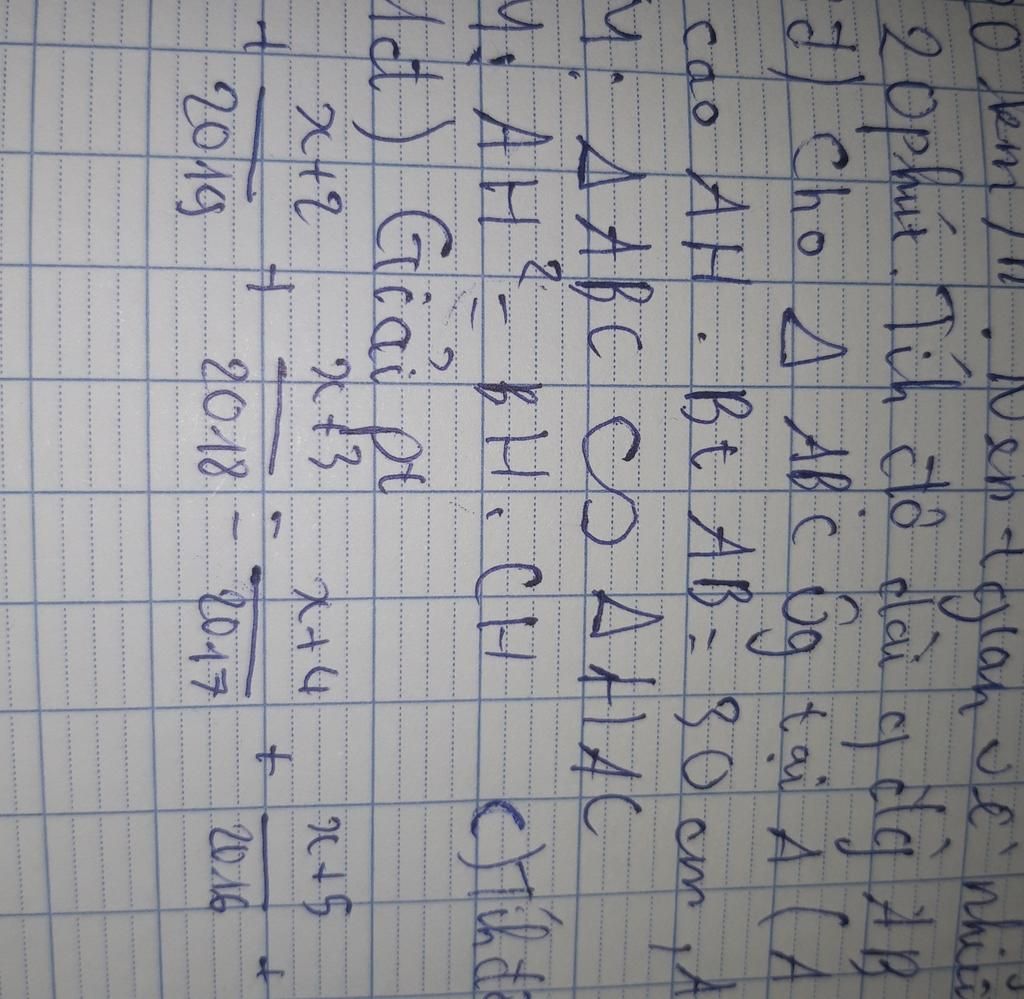 0 km/h. Nên tgian về nhiều
20phút. Tíh độ dài qđg AB
đ) Cho Δ ABC Vg tại A (A
cao AH. Bt AB = 80 cm, A
M: Δ ABC ∽ Δ HAC
M: AH² = BH. CH c) Tíh độ
1đ) Giải pt
+ x+2/2019 + x+3/2018 = x+4/2017 + x+5/2016 +